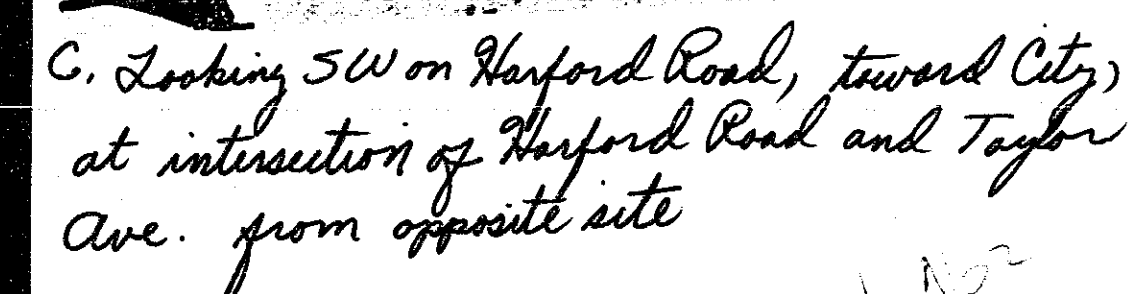 C. Looking SW on Harford Road, toward City,
at intersection of Harford Road and Taylor
Ave. from opposite site